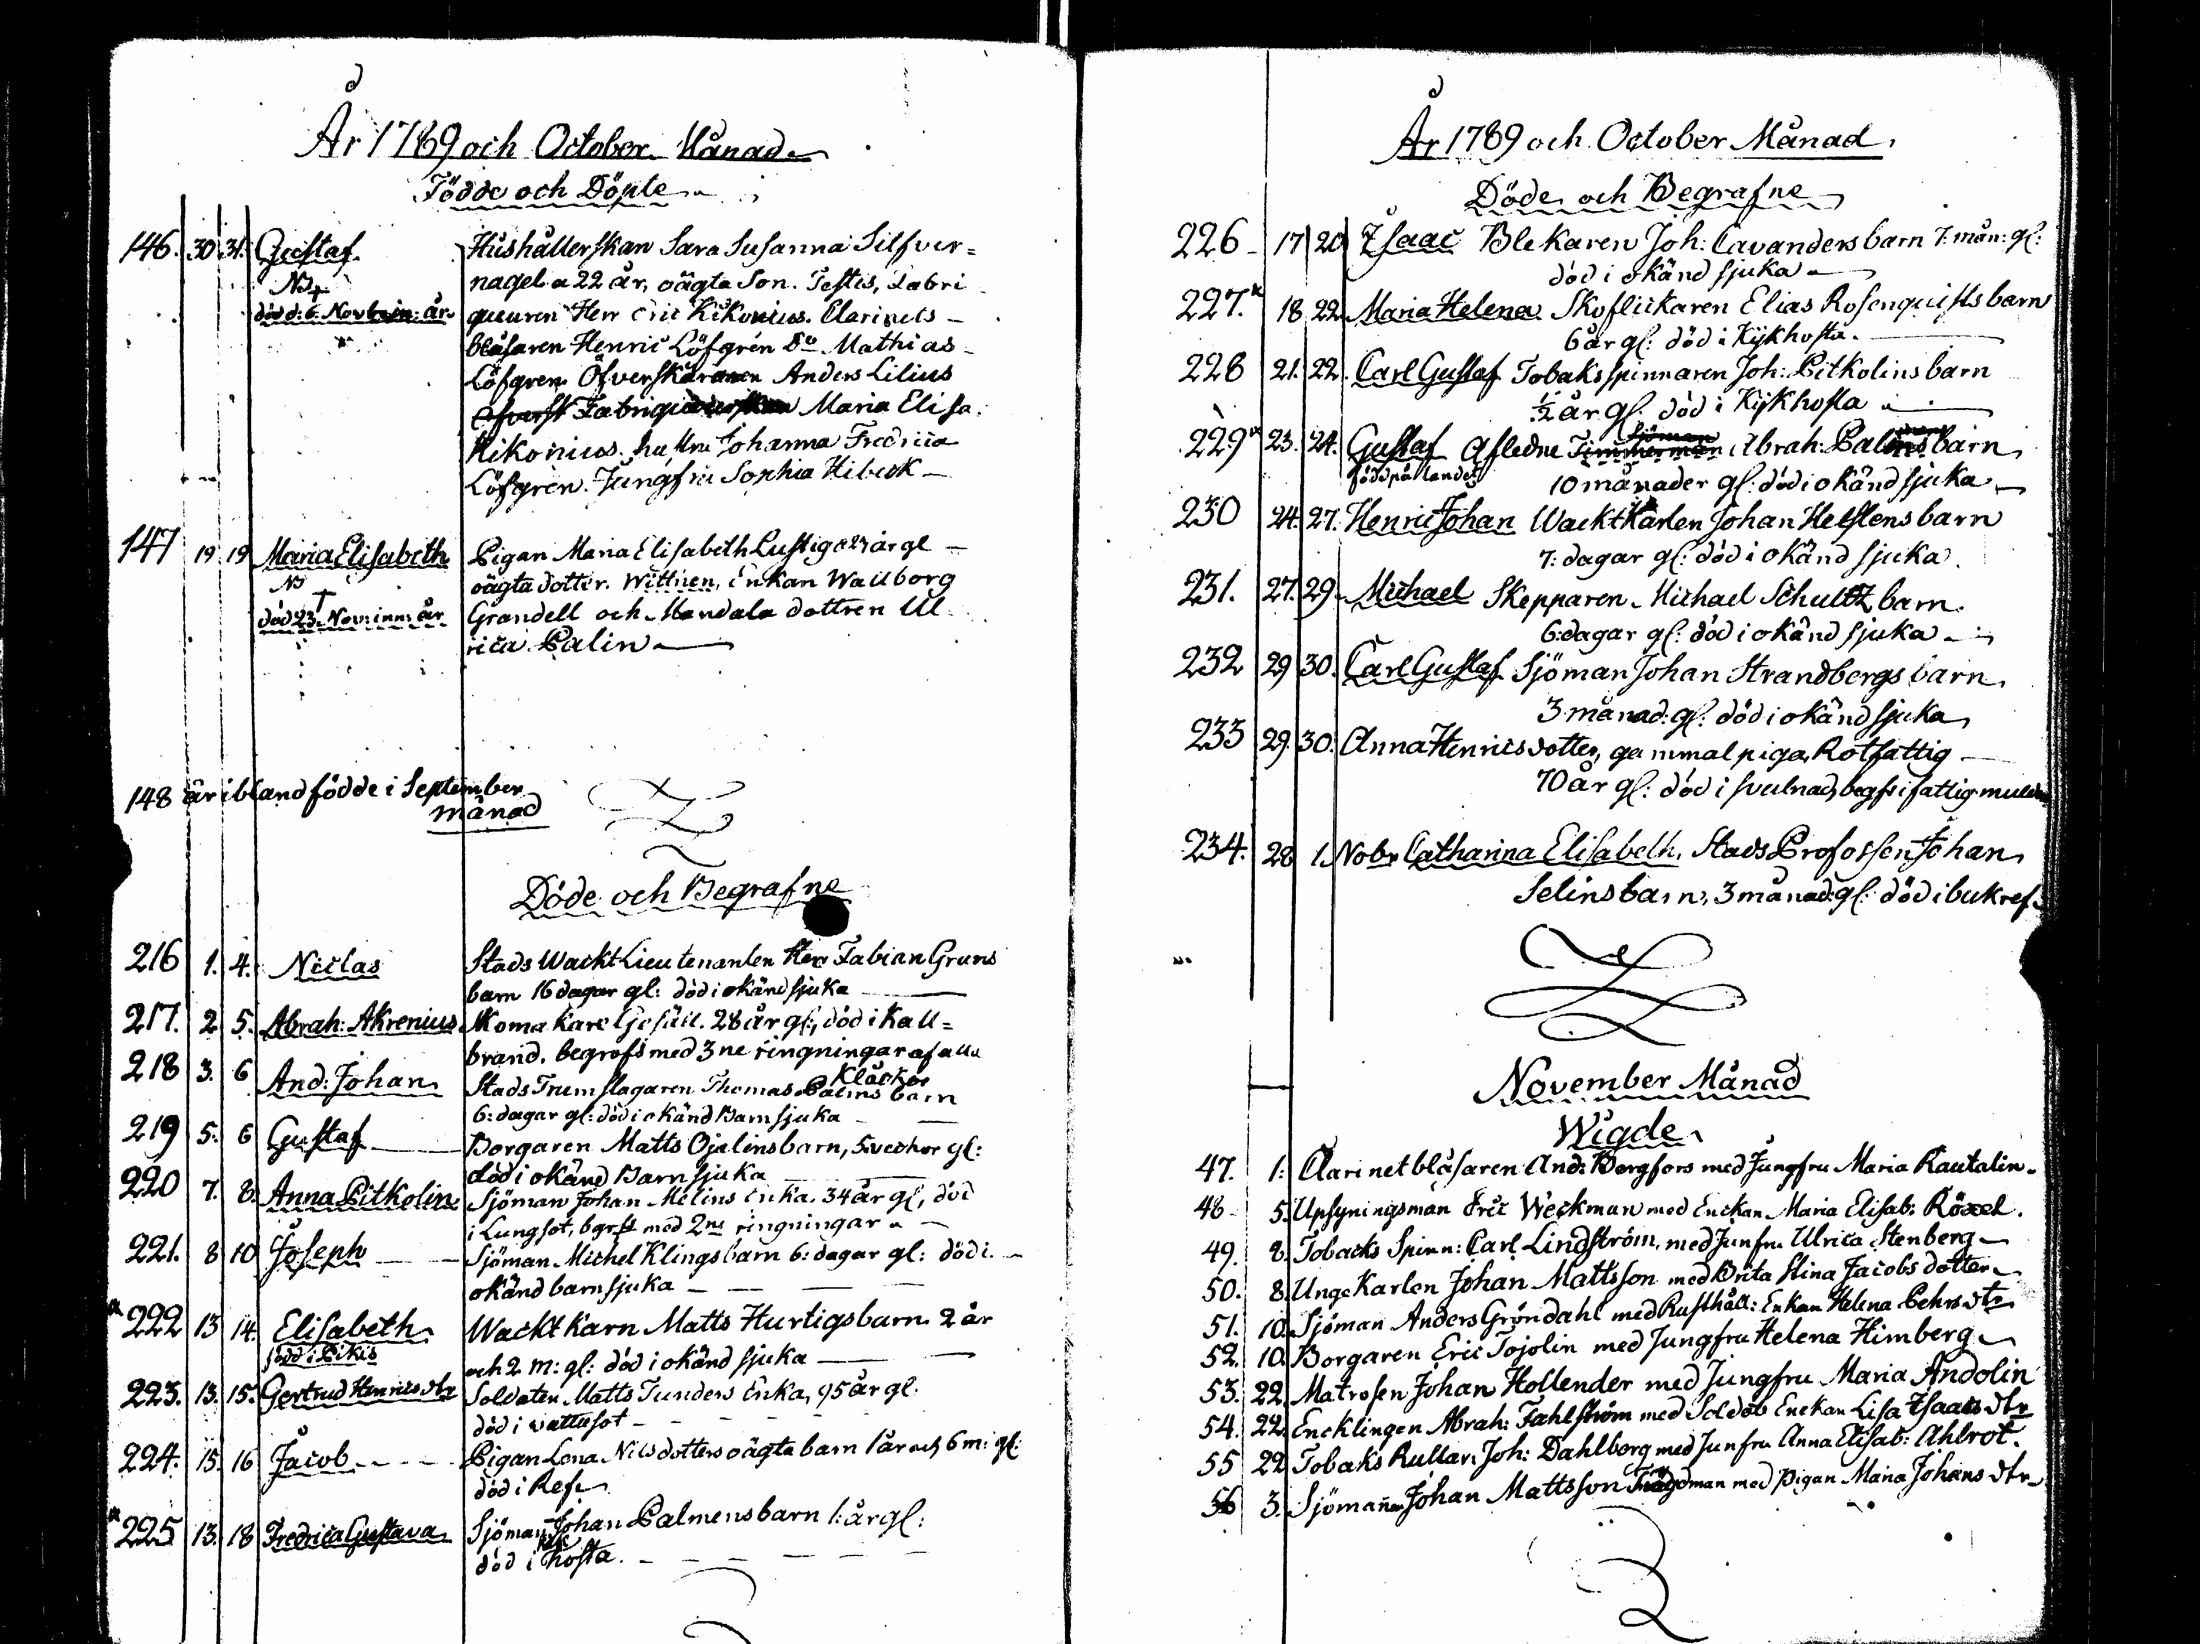 År 1789 och October Månad
Födde och Döpte
146. 30 31. Gustaf Hushållerskan Sara Susanna Silfver=
No + nagel a 22 år, oägta Son. Testis, Fabri
död d: 6. Nov: innev: år queuren Herr Eric Kikonius. Clarinets
blåsaren Henric Löfgren Do Mathias
Löfgren Öfverskäraren Anders Lilius
Fabriqu Maria Elisa.
Kikonius. hustru Johanna Fredrica
Löfgren. Jungfru Sophia Hibeck
147 19 19 Maria Elisabeth Pigan Maria Elisabeth Lustig a 29 år gl
No oägta dotter. Wittnen, Enkan Wallborg
död 23. Nov: inn: år Grandell och Mandala dottren Ul
rica Palin
148 är ibland födde i September
månad
Döde och Begrafne
216 1. 4. Niclas Stads Wackt Lieutenanten Herr Fabian Gruns
barn 16 dagar gl: död i okänd sjuka
217. 2 5. Abrah: Akrenius Skomakare Gesäll. 28 år gl:, död i Kall=
brand. begrofs med 3ne ringningar af alla
Klåckor
218 3. 6 And: Johan Stads Trumslagaren Thomas Palms barn
6: dagar gl: död i okänd Barnsjuka
219 5. 6 Gustaf Borgaren Matts Ojalins barn, 5 veckor gl:
död i okänd Barnsjuka
220 7. 8. Anna Pitkolin Sjöman Johan Melins Enka. 34 år gl, död
i Lungsot, bgrfs med 2ne ringningar
221. 8 10 Joseph Sjöman Michel Klings barn 6: dagar gl: död i
okänd barnsjuka
222 13 14. Elisabeth Wackt Karn Matts Hurtigs barn 2 år
född i Pikis och 2 m: gl: död i okänd sjuka
223. 13. 15. Gertrud Henrics dtr Soldaten Matts Tunders Enka, 95 år gl.
död i wattusot
224. 15. 16 Jacob Pigan Lena Nilsdotters oägta barn 1 år och 6 m: gl:
död i Ref
225 13. 18 Fredrica Gustava Sjöman Johan Palmens barn 1: år gl:
död i Kikhosta.
År 1789 och October Månad
Döde och Begrafne
226 17 20 Isaac Blekaren Joh: Cavanders barn 7: mån: gl:
död i okänd sjuka
227. 18 22 Maria Helena Skoflickaren Elias Rosenquists barn
6 år gl: död i Kijkhosta.
228 21. 22. Carl Gustaf Tobaksspinnaren Joh: Pitkolins barn
½ år gl: död i Kijkhosta
Sjöman
229 23. 24. Gustaf Afledne Timmerman Abrah: Palins barn
född på landet 10 månader gl: död i okänd sjuka
230 24. 27. Henric Johan Wackt Karlen Johan Helstens barn
7: dagar gl: död i okänd sjuka.
231. 27. 29 Michael Skepparen Michael Schultz barn.
6: dagar gl: död i okänd sjuka
232 29 30. Carl Gustaf Sjöman Johan Strandbergs barn
3 månad: gl: död i okänd sjuka
233 29. 30. Anna Henricsdotter, gammal piga, Rotfattig
70 år gl: död i svulnad, begfs i fattig mullen
234. 28 1. Nobr Catharina Elisabeth. Stads Profossen Johan
Selins barn, 3 månad: gl: död i bukref.
November Månad
Wigde
47. 1: Clarinetblåsaren And: Bergfors med Jungfru Maria Rautalin.
48 5. Upsyningsman Eric Weckman med Enckan Maria Elisab: Röxel.
49. 8. Tobacks Spinn: Carl Lindström, med Junfru Ulrica Stenberg
50. 8. Unge Karlen Johan Mattsson med Brita Stina Jacobs dotter
51. 10. Sjöman Anders Gröndahl med Rusthåll: Enkan Helena Pehrs dtr
52. 10. Borgaren Eric Tojolin med Jungfru Helena Himberg
53. 22. Matrosen Johan Hollender med Jungfru Maria Andolin
54. 22. Encklingen Abrah: Fahlström med Soldat Enckan Lisa Isaacs dtr
55 22 Tobaks Rullar: Joh: Dahlberg med Junfru Anna Elisab: Ahlrot.
56 3. Sjömannen Johan Mattsson med Pigan Maria Johans dtr